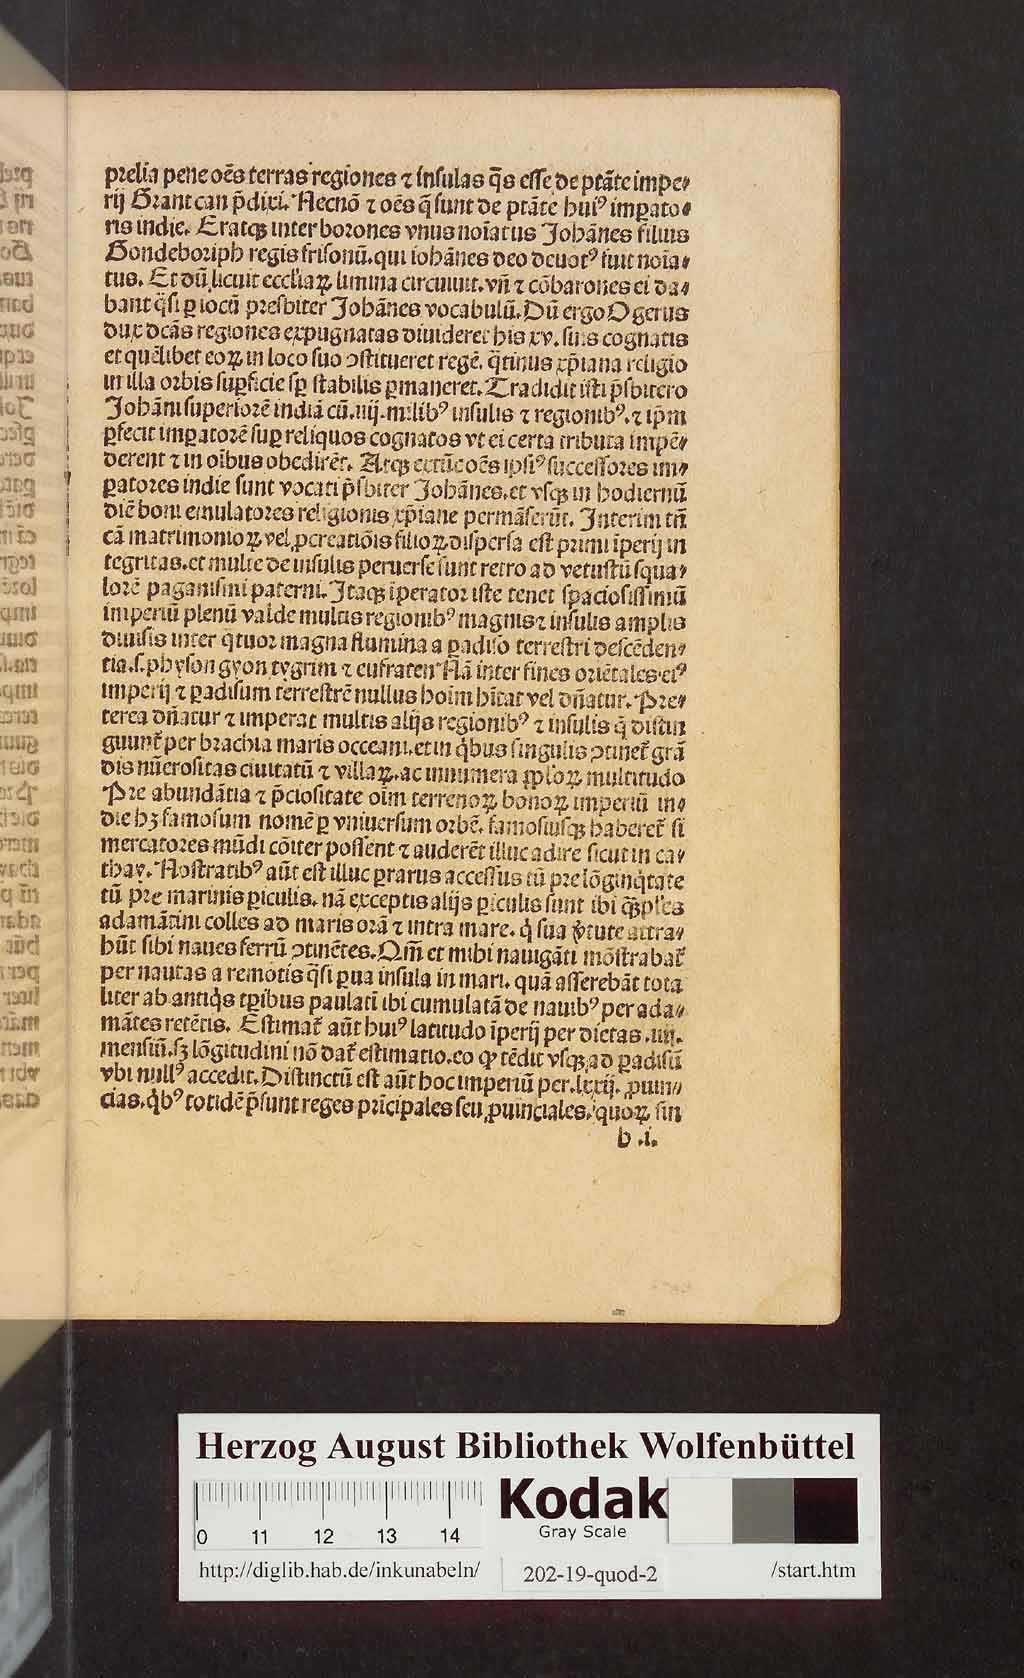 prelia pene oēs terras regiones ⁊ insulas q̄s esse de ptāte impe⸗
rij Grant can p̄dixi. Necnō ⁊ oēs q̄ sunt de ptāte huiꝰ impato⸗
ris indie. Eratqꝫ inter borones vnus noīatus Johānes filius
Gondeboriph regis frisonū. qui iohānes deo deuotꝰ fuit noīa⸗
tus. Et dū licuit eccl'iaꝝ limina circuiuit. vn̄ ⁊ cōbarones ei da⸗
bant q̄si ꝑ iocū presbiter Johānes vocabulū. Dū ergo Ogerus
dux dcās regiones expugnatas diuideret his xv. suis cognatis
et quēlibet eoꝝ in loco suo ꝯstitueret regē. q̄tinus xp̄iana religio
in illa orbis suꝑficie sꝑ stabilis ꝑmaneret. Tradidit isti p̄sbitero
Johāni superiorē indiā cū .iiij. milibꝰ insulis ⁊ regionibꝰ. ⁊ ip̄m
ꝑfecit imꝑatorē suꝑ reliquos cognatos vt ei certa tributa impē⸗
derent ⁊ in oībus obedirēt. Atqꝫ extūc oēs ipsiꝰ successores im⸗
ꝑatores indie sunt vocati p̄sbiter Johānes. et vsqꝫ in hodiernū
diē boni emulatores religionis xp̄iane permāserūt. Interim tn̄
cā matrimonioꝝ vel ꝓcreatiōis filioꝝ dispersa est primi īperij in
tegritas. et multe de insulis peruerse sunt retro ad vetustū squa⸗
lorē paganismi paterni. Itaqꝫ īperator iste tenet spaciosissimū
imperiū plenū valde multis regionibꝰ magnis ⁊ insulis amplis
diuisis inter q̄tuor magna flumina a ꝑadiso terrestri descēden⸗
tia. s. physon gyon tygrim ⁊ eufraten Nā inter fines oriētales eiꝰ
imperij ⁊ ꝑadisum terrestrē nullus hoīm hītat vel dn̄atur. Pre⸗
terea dn̄atur ⁊ imperat multis alijs regionibꝰ ⁊ insulis q̄ distin
guunt̄ per brachia maris occeani. et in q̇bus singulis ꝯtinet̄ grā
dis nūerositas ciuitatū ⁊ villaꝝ. ac innumera pploꝝ multitudo
Pre abundātia ⁊ p̄ciositate oīm terrenoꝝ bonoꝝ imperiū in⸗
die hꝫ famosum nomē ꝑ vniuersum orbē. famosiusqꝫ haberet̄ si
mercatores mūdi cōiter possent ⁊ auderēt illuc adire sicut in ca⸗
thay. Nostratibꝰ aūt est illuc ꝑrarus accessus tū pre lōginq̇tate
tū pre marinis ꝑiculis. nā exceptis alijs ꝑiculis sunt ibi q̄ꝫpl'es
adamātini colles ad maris orā ⁊ intra mare. q̇ sua v̇tute attra⸗
hūt sibi naues ferrū ꝯtinētes. Qm̄ et mihi nauigāti mōstrabat̄
per nautas a remotis q̄si ꝑua insula in mari. quā asserebāt tota
liter ab antiq̇s tꝑibus paulati ibi cumulatā de nauibꝰ per ada⸗
mātes retētis. Estimat̄ aūt huiꝰ latitudo īperij per dietas .iiij.
mensiū. sꝫ lōgitudini nō dat̄ estimatio. eo ꝙ tēdit vsqꝫ ad ꝑadisū
vbi nullꝰ accedit. Distinctū est aūt hoc imperiū per .lxxij. ꝓuin⸗
cias. q̇bꝰ totidē p̄sunt reges prīcipales seu ꝓuinciales. quoꝝ sin
b .i.
Herzog August Bibliothek Wolfenbüttel
0 11 12 13 14
Kodak
Gray Scale
http://diglib.hab.de/inkunabeln/ 202-19-quod-2 /start.htm